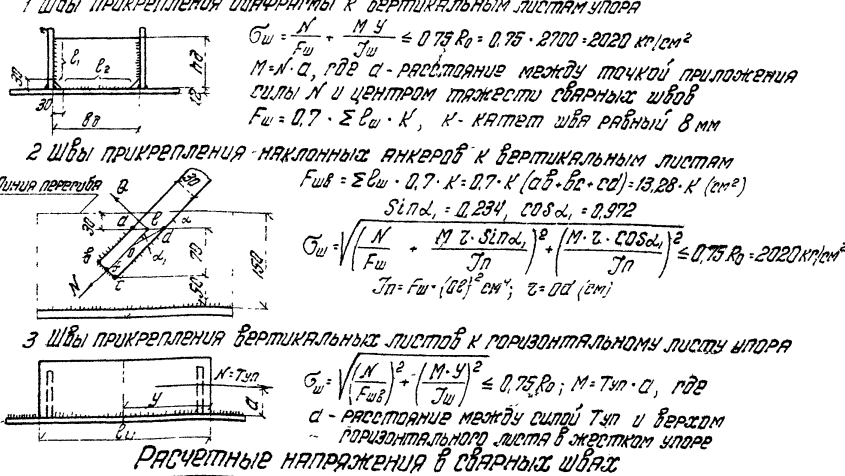 1 Швы прикрепления диафрагмы к вертикальным листам упора
σш = N/Fш + M У/Jш ≤ 0.75 R₀ = 0.75 · 2700 = 2020 кг/см²
M = N·a, где a - расстояние между точкой приложения
силы N и центром тяжести сварных швов
Fш = 0.7 · Σℓш · K, K - катет шва равный 8 мм
ℓ₁
ℓ₂
30
30
hд
12
вд
2 Швы прикрепления наклонных анкеров к вертикальным листам
Линия перегиба
Fшв = Σℓш · 0.7 · K = 0.7 · K (ab + bc + cd) = 13.28 · K (см²)
Sinα₁ = 0.234, cosα₁ = 0.972
σш = √((N/Fш + M τ · Sinα₁/Jп)² + (M · τ · cosα₁/Jп)²) ≤ 0.75 R₀ = 2020 кг/см²
Jп = Fш · (0ℓ)² см⁴; τ = 0d (см)
Q
20
30
a
ℓ
α
d
в
0
α₁
c
N
70
50
150
3 Швы прикрепления вертикальных листов к горизонтальному листу упора
N = Tуп
У
a
ℓ
σш = √((N/Fшв)² + (M · У/Jш)²) ≤ 0.75 R₀; M = Tуп · a, где
a - расстояние между силой Tуп и верхом
горизонтального листа в жестком упоре
Расчетные напряжения в сварных швах